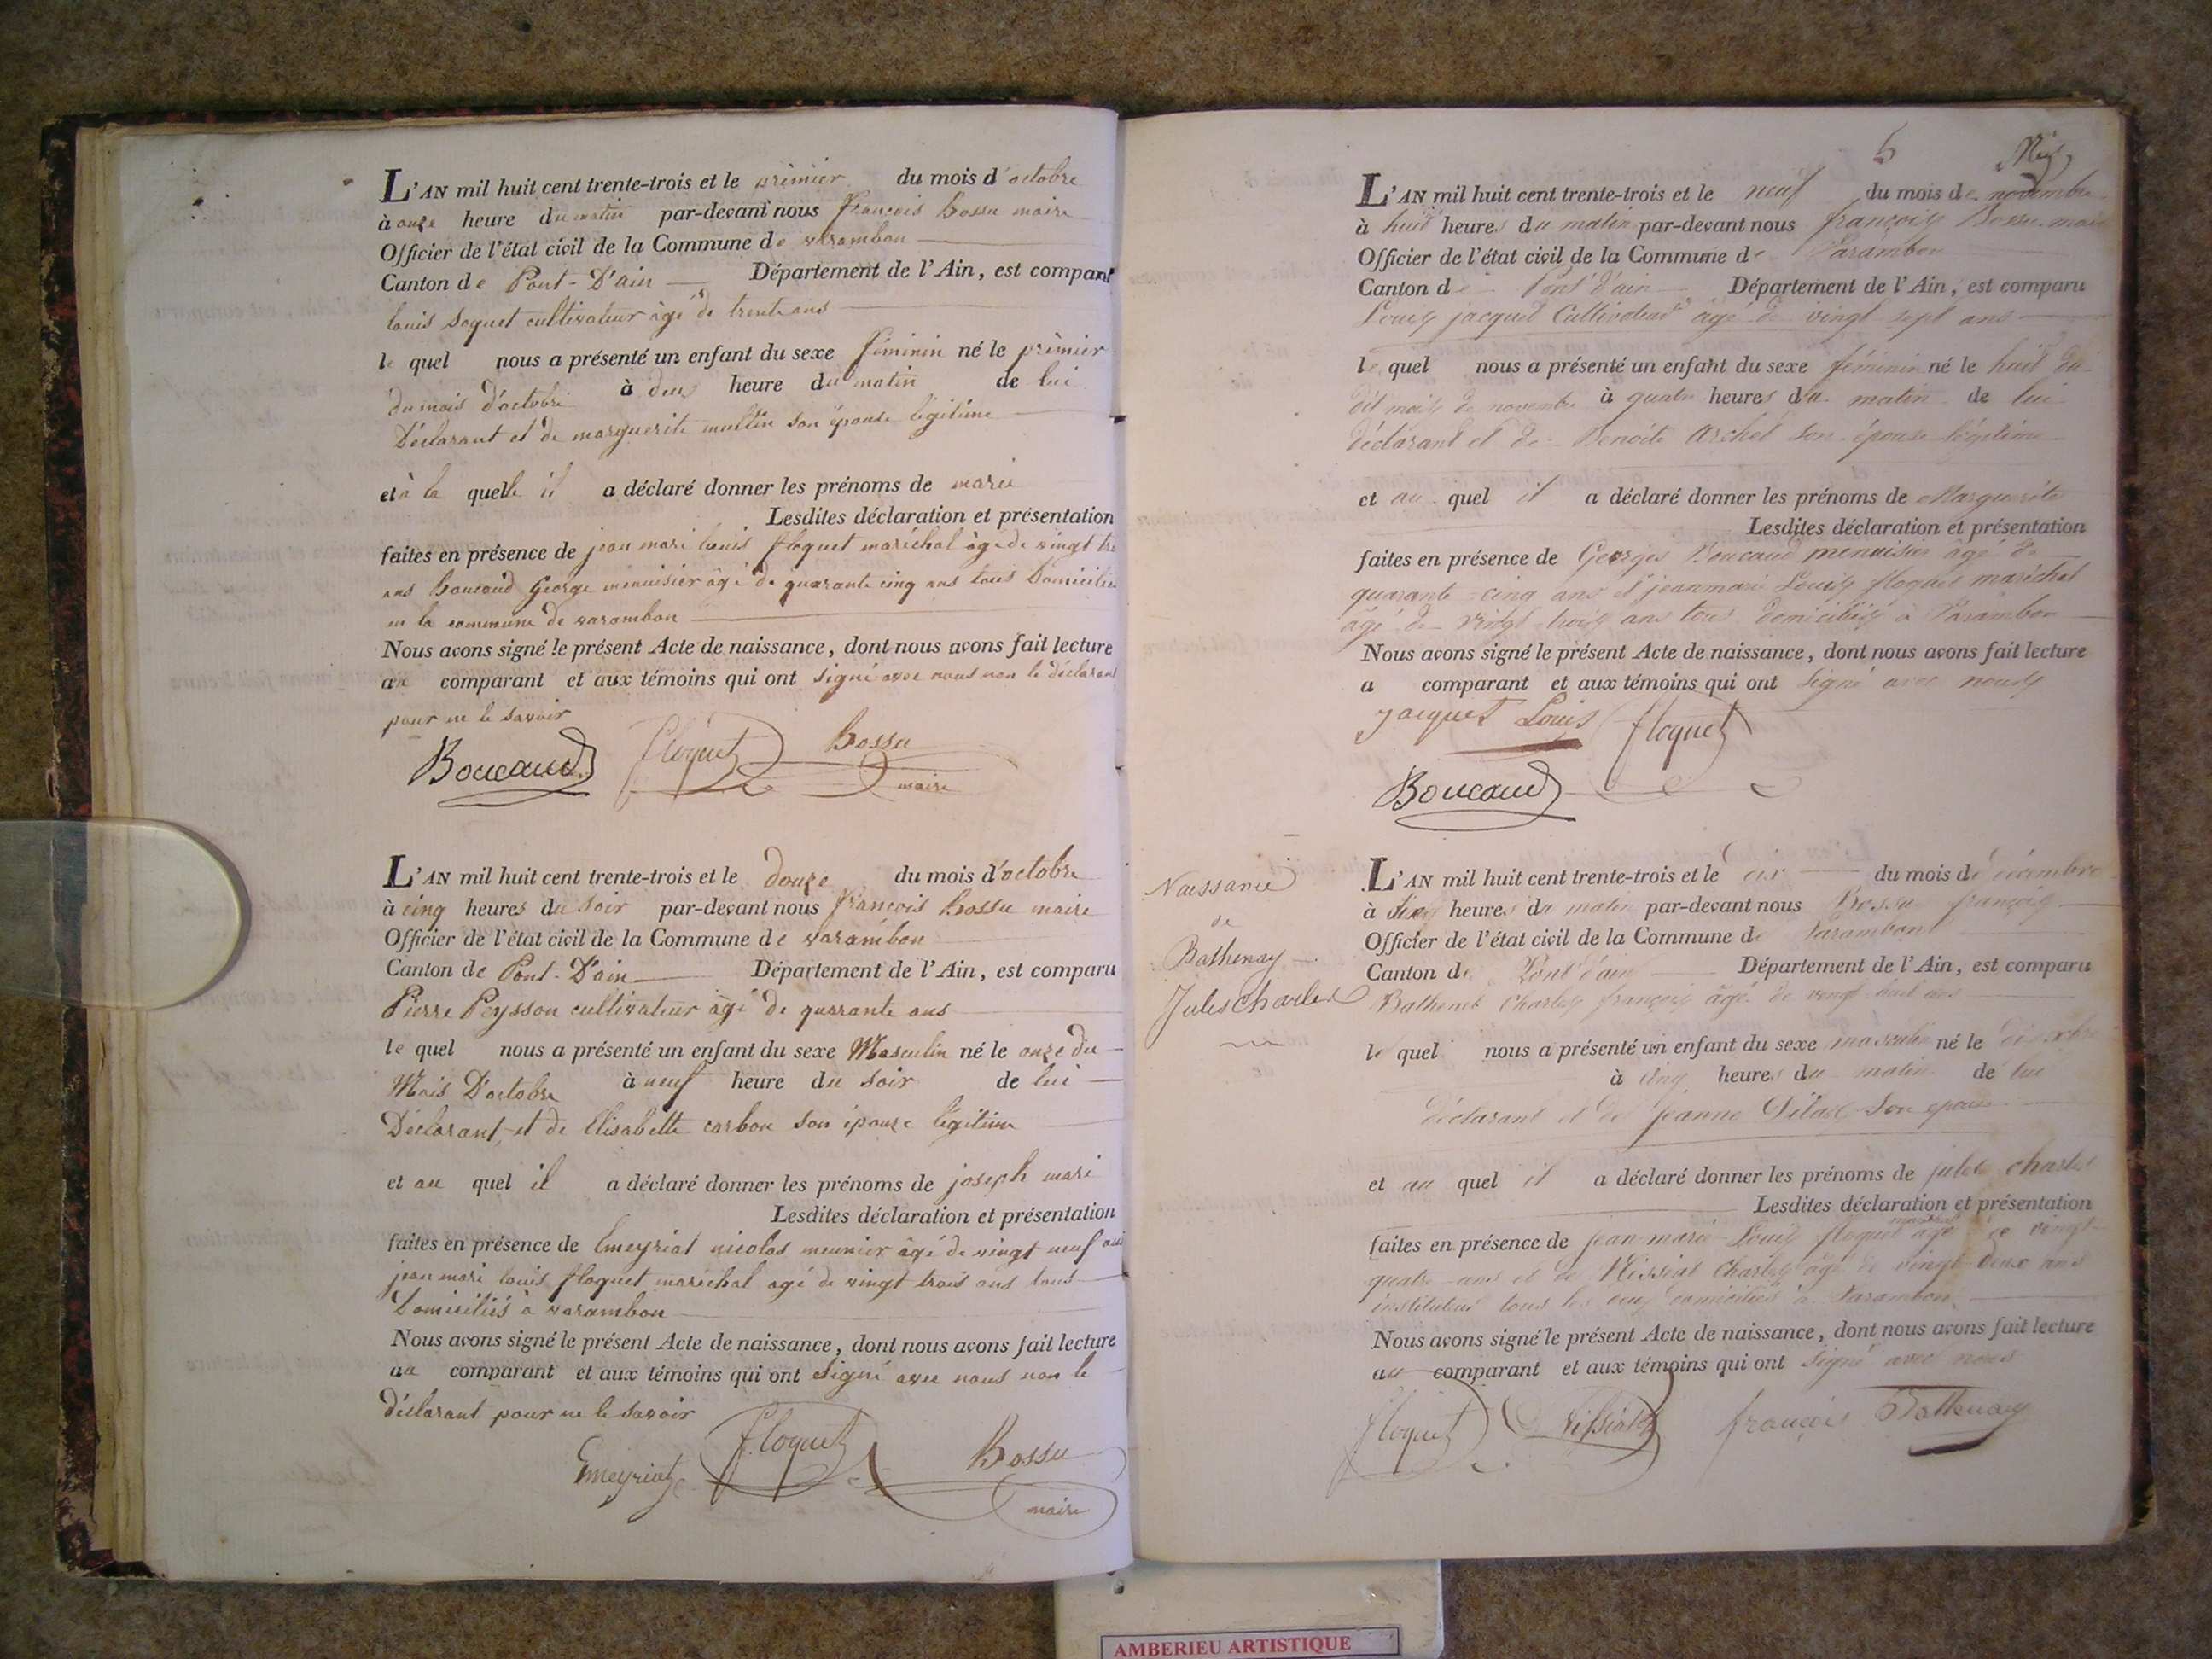 L'AN mil huit cent trente-trois et le prèmier du mois d'octobre
à onze heure du matin par-devant nous françois bossu maire
Officier de l'état civil de la Commune de varambon
Canton de Pont-D'ain Département de l'Ain, est comparu
louis cultivateur âgé de trente ans
le quel nous a présenté un enfant du sexe féminin né le prèmier
du mois d'octobre à deux heure du matin de lui
Déclarant et de marguerite son épouse légitime
et à la quelle il a déclaré donner les prénoms de marie
Lesdites déclaration et présentation
faites en présence de jean mari louis floquet maréchal âgé de vingt
ans boucaud George menuisier âgé de quarante cinq ans tous Domiciliés
en la commune de varambon
Nous avons signé le présent Acte de naissance, dont nous avons fait lecture
au comparant et aux témoins qui ont signé avec nous non le déclarant
pour ne le savoir
Boucaud floquet bossu
maire
L'AN mil huit cent trente-trois et le douze du mois d'octobre
à cinq heures du soir par-devant nous françois bossu maire
Officier de l'état civil de la Commune de varambon
Canton de Pont-D'ain Département de l'Ain, est comparu
Pierre Peysson cultivateur âgé de quarante ans
le quel nous a présenté un enfant du sexe Masculin né le onze du
Mois D'octobre à neuf heure du soir de lui
Déclarant et de Elisabette carbon son épouze légitime
et au quel il a déclaré donner les prénoms de joseph mari
Lesdites déclaration et présentation
faites en présence de Emeyriat nicolas meunier âgé de vingt neuf ans
jean mari louis floquet maréchal agé de vingt trois ans tous
Domiciliés à varambon
Nous avons signé le présent Acte de naissance, dont nous avons fait lecture
au comparant et aux témoins qui ont signé avec nous non le
déclarant pour ne le savoir
Emeyriat floquet bossu
maire
L'AN mil huit cent trente-trois et le neuf du mois de novembre
à huit heures du matin par-devant nous françois Bossu maire
Officier de l'état civil de la Commune de Varambon
Canton de Pont d'ain Département de l'Ain, est comparu
Louis jacquet Cultivateur âgé de vingt sept ans
le quel nous a présenté un enfant du sexe féminin né le huit du
dit mois de novembre à quatre heures du matin de lui
déclarant et de Benoite Archet son épouse légitime
et au quel il a déclaré donner les prénoms de Marguerite
Lesdites déclaration et présentation
faites en présence de Georges Boucaud menuisier âgé de
quarante cinq ans et jean marie Louis floquet maréchal
âgé de vingt trois ans tous domiciliés à Varambon
Nous avons signé le présent Acte de naissance, dont nous avons fait lecture
a comparant et aux témoins qui ont signé avec nous
Jacquet Louis floquet
Boucaud
Naissance
de
Bathenay
Jules Charles
L'AN mil huit cent trente-trois et le dix du mois de décembre
à heures du matin par-devant nous Bossu françois
Officier de l'état civil de la Commune de Varambont
Canton de Pont d'ain Département de l'Ain, est comparu
Charles françois âgé de vingt huit ans
le quel nous a présenté un enfant du sexe masculin né le
à cinq heures du matin de lui
déclarant et de jeanne son épouse
et au quel il a déclaré donner les prénoms de jules charles
Lesdites déclaration et présentation
faites en présence de jean marie Louis floquet maréchal âgé de vingt
quatre ans et de Charles âgé de vingt deux ans
instituteur tous les deux domiciliés à Varambon
Nous avons signé le présent Acte de naissance, dont nous avons fait lecture
au comparant et aux témoins qui ont signé avec nous
floquet françois Bathenay
AMBERIEU ARTISTIQUE